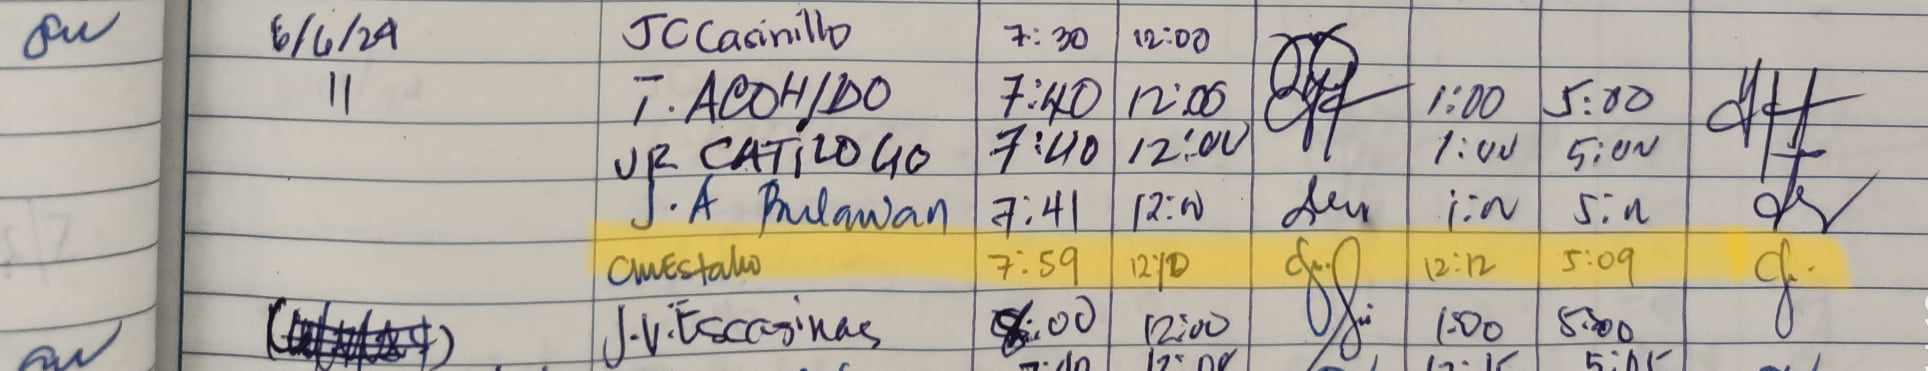 6/6/24 JC Casinillo 7:30 12:00
11 T. ACOHIDO 7:40 12:00 1:00 5:00
JR CATILOGO 7:40 12:00 1:00 5:00
J.A Bulawan 7:41 12:00 1:00 5:00
CMEstaño 7:59 12:10 12:12 5:09
J.V. Escasinas 8:00 12:00 1:00 5:00
7:40 12:15